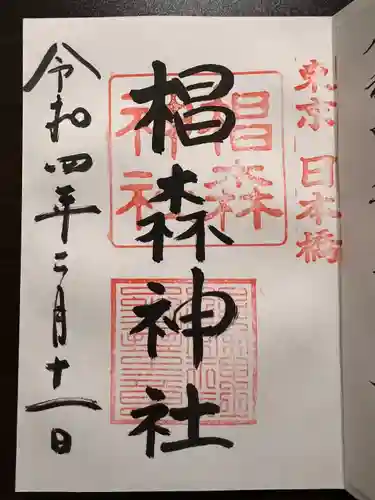 東京 日本橋
椙森
神社
椙森神社
令和四年二月十一日